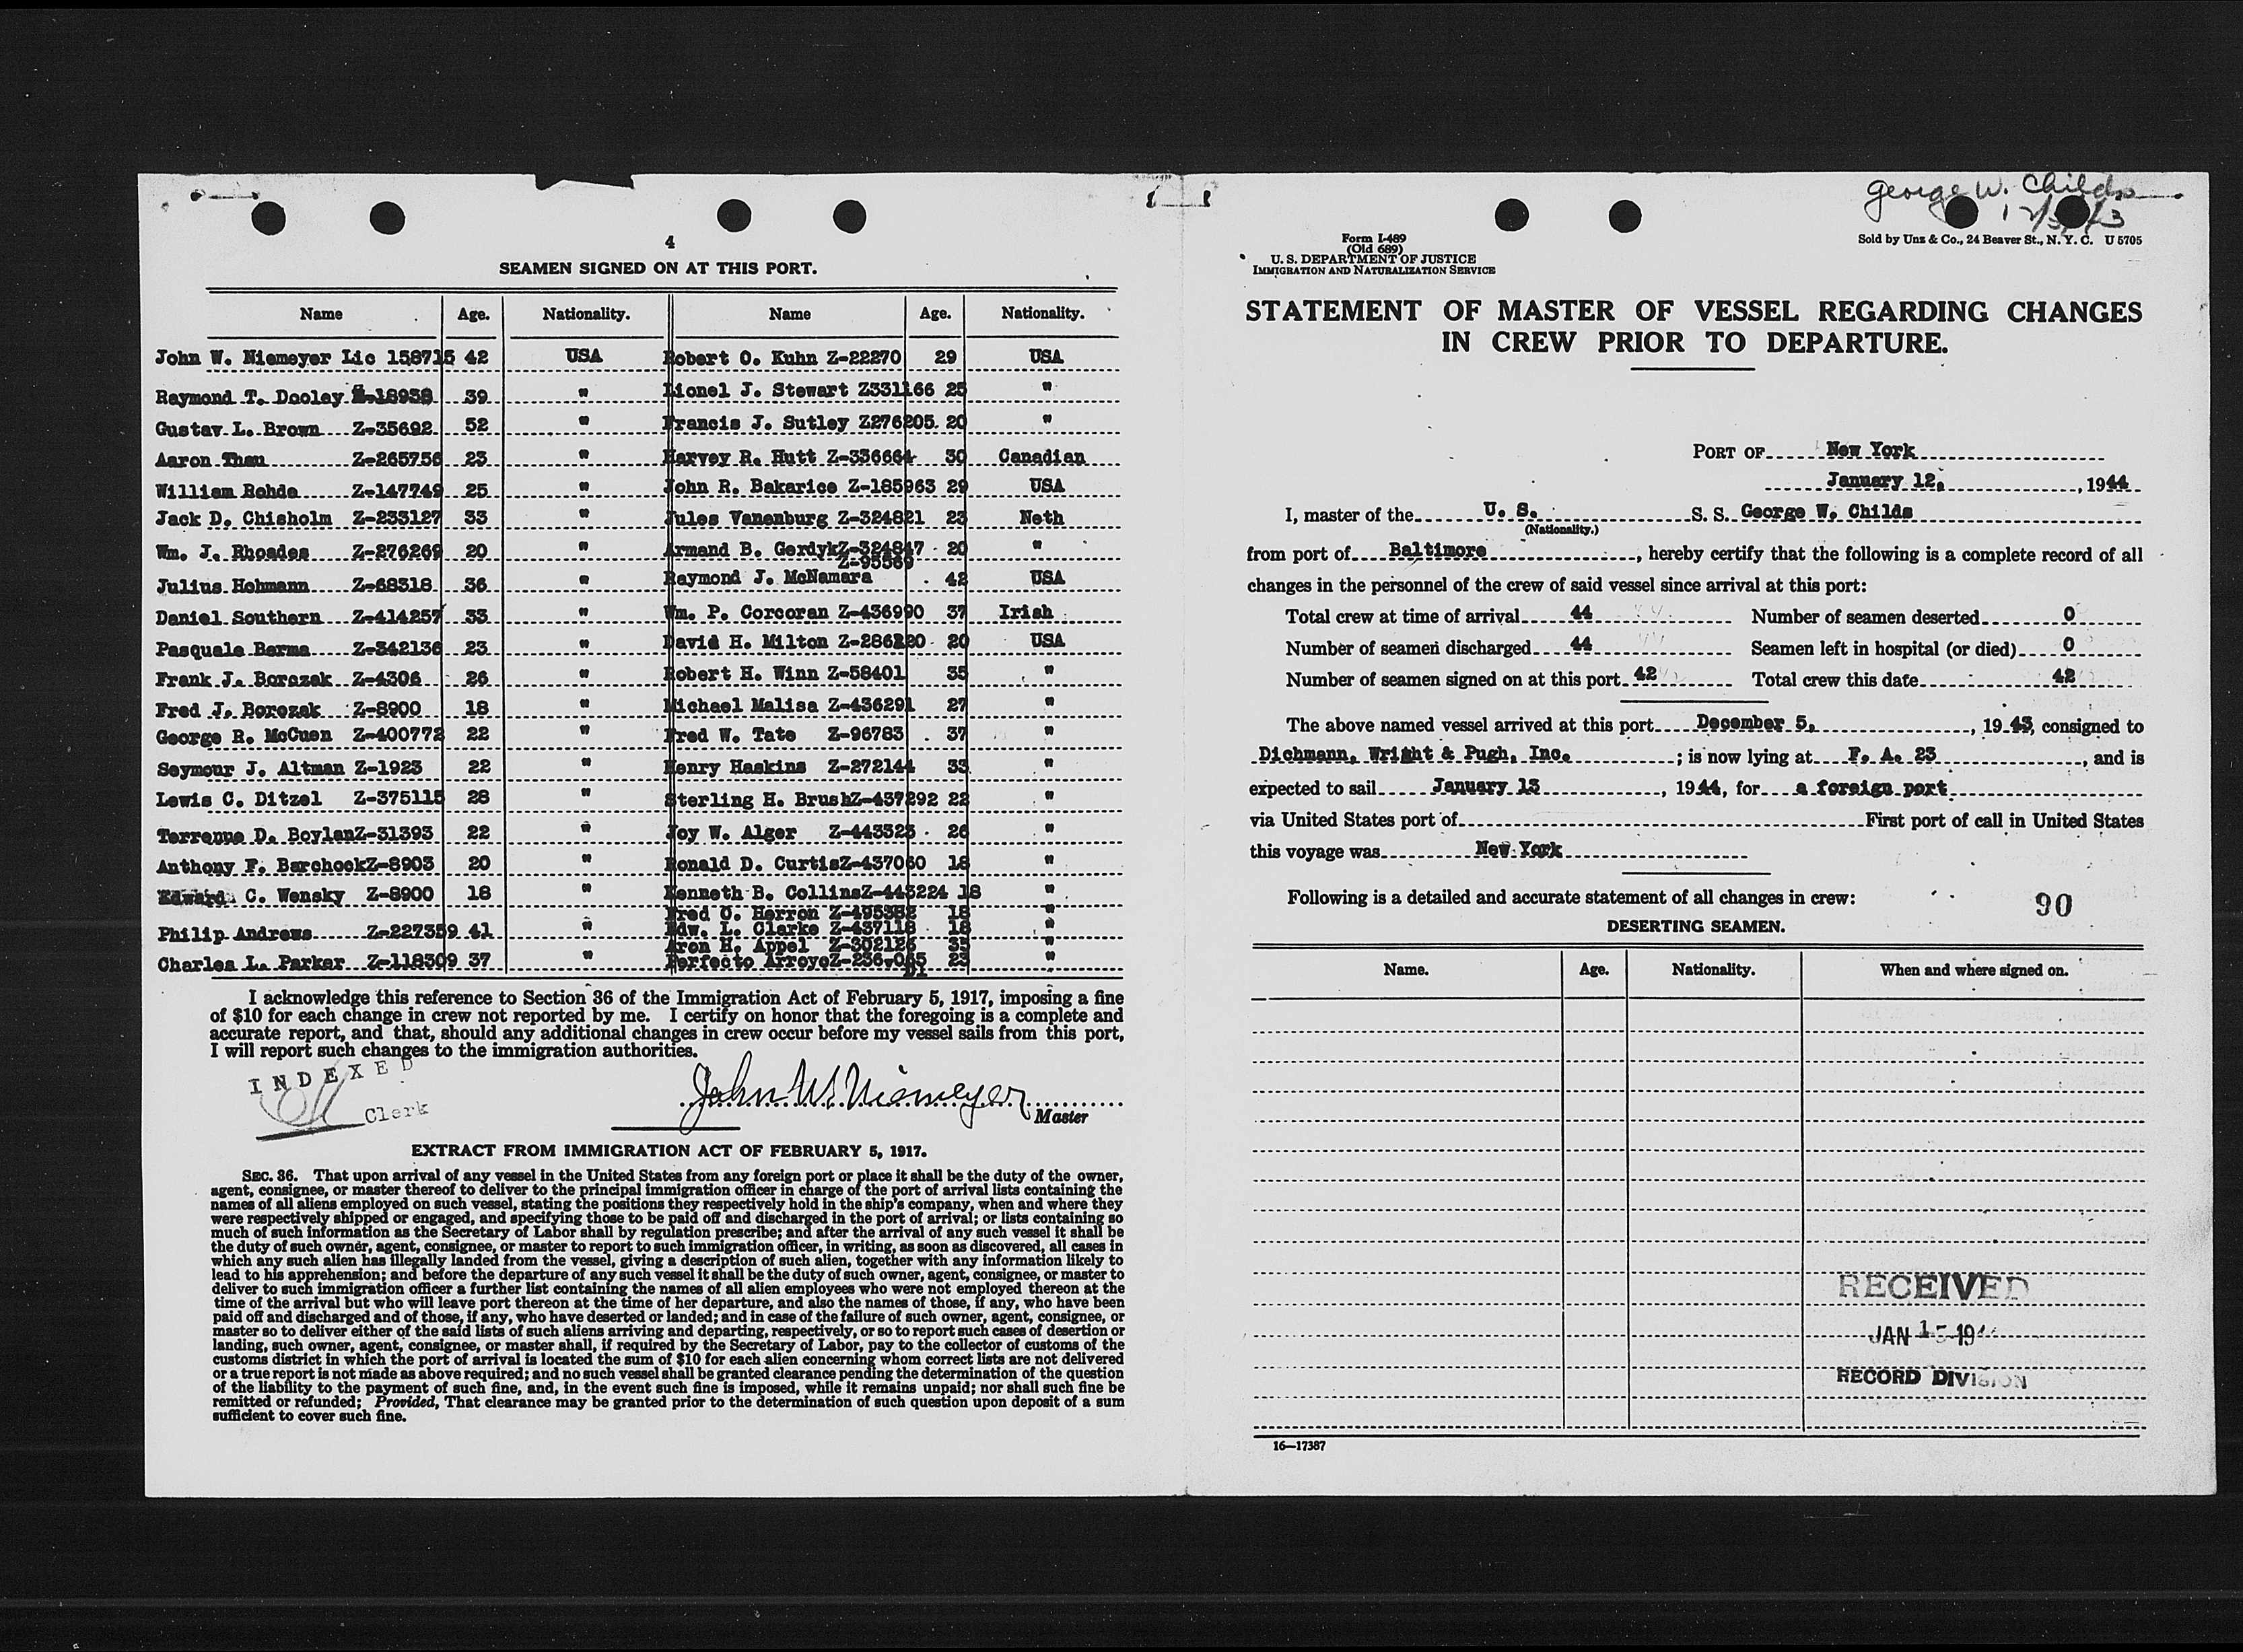 4
SEAMEN SIGNED ON AT THIS PORT.
Name Age. Nationality. Name Age. Nationality.
John W. Niemeyer Lic 158715 42 USA Robert O. Kuhn Z-22270 29 USA
Raymond T. Dooley Z-18938 39 " Lionel J. Stewart Z331166 25 "
Gustav L. Brown Z-35692 52 " Francis J. Sutley Z276205 20 "
Aaron Thau Z-265756 23 " Harvey R. Hutt Z-336664 30 Canadian
William Rohde Z-147749 25 " John R. Bakarice Z-185963 29 USA
Jack D. Chisholm Z-233127 33 " Jules Vanenburg Z-324821 23 Neth
Wm. J. Rhoades Z-276269 20 " Armand B. GerdykZ-324847 20 "
Z-95569
Julius Hohmann Z-68318 36 " Raymond J. McNamara 42 USA
Daniel Southern Z-414257 33 " Wm. P. Corcoran Z-436990 37 Irish
Pasquale Berma Z-342136 23 " David H. Milton Z-286220 20 USA
Frank J. Borozak Z-4306 26 " Robert H. Winn Z-58401 35 "
Fred J. Borozak Z-8900 18 " Michael Malisa Z-436291 27 "
George R. McCuen Z-400772 22 " Fred W. Tate Z-96783 37 "
Seymour J. Altman Z-1923 22 " Henry Haskins Z-272144 33 "
Lewis C. Ditzel Z-375115 28 " Sterling H. BrushZ-437292 22 "
Terrenue D. BoylanZ-31393 22 " Joy W. Alger Z-443323 26 "
Anthony F. BarchockZ-8903 20 " Ronald D. CurtisZ-437060 18 "
Edward C. Wensky Z-8900 18 " Kenneth B. CollinsZ-443224 18 "
Fred C. Herron Z-495382 18 "
Philip Andrews Z-227359 41 " Edw. L. Clarke Z-437118 18 "
Aron H. Appel Z-302126 35 "
Charles L. Parker Z-118309 37 " Perfecto ArroyoZ-236,065 23 "
D1
I acknowledge this reference to Section 36 of the Immigration Act of February 5, 1917, imposing a fine
of $10 for each change in crew not reported by me. I certify on honor that the foregoing is a complete and
accurate report, and that, should any additional changes in crew occur before my vessel sails from this port,
I will report such changes to the immigration authorities.
INDEXED
Clerk
John W. Niemeyer
Master
EXTRACT FROM IMMIGRATION ACT OF FEBRUARY 5, 1917.
SEC. 36. That upon arrival of any vessel in the United States from any foreign port or place it shall be the duty of the owner,
agent, consignee, or master thereof to deliver to the principal immigration officer in charge of the port of arrival lists containing the
names of all aliens employed on such vessel, stating the positions they respectively hold in the ship's company, when and where they
were respectively shipped or engaged, and specifying those to be paid off and discharged in the port of arrival; or lists containing so
much of such information as the Secretary of Labor shall by regulation prescribe; and after the arrival of any such vessel it shall be
the duty of such owner, agent, consignee, or master to report to such immigration officer, in writing, as soon as discovered, all cases in
which any such alien has illegally landed from the vessel, giving a description of such alien, together with any information likely to
lead to his apprehension; and before the departure of any such vessel it shall be the duty of such owner, agent, consignee, or master to
deliver to such immigration officer a further list containing the names of all alien employees who were not employed thereon at the
time of the arrival but who will leave port thereon at the time of her departure, and also the names of those, if any, who have been
paid off and discharged and of those, if any, who have deserted or landed; and in case of the failure of such owner, agent, consignee, or
master so to deliver either of the said lists of such aliens arriving and departing, respectively, or so to report such cases of desertion or
landing, such owner, agent, consignee, or master shall, if required by the Secretary of Labor, pay to the collector of customs of the
customs district in which the port of arrival is located the sum of $10 for each alien concerning whom correct lists are not delivered
or a true report is not made as above required; and no such vessel shall be granted clearance pending the determination of the question
of the liability to the payment of such fine, and, in the event such fine is imposed, while it remains unpaid; nor shall such fine be
remitted or refunded; Provided, That clearance may be granted prior to the determination of such question upon deposit of a sum
sufficient to cover such fine.
George W. Childs
Form I-489
(Old 689)
U. S. DEPARTMENT OF JUSTICE
IMMIGRATION AND NATURALIZATION SERVICE
Sold by Unz & Co., 24 Beaver St., N. Y. C. U 5705
STATEMENT OF MASTER OF VESSEL REGARDING CHANGES
IN CREW PRIOR TO DEPARTURE.
PORT OF New York
January 12, , 1944
I, master of the U. S. S. S. George W. Childs
(Nationality.)
from port of Baltimore , hereby certify that the following is a complete record of all
changes in the personnel of the crew of said vessel since arrival at this port:
Total crew at time of arrival 44 Number of seamen deserted 0
Number of seamen discharged 44 Seamen left in hospital (or died) 0
Number of seamen signed on at this port 42 Total crew this date 42
The above named vessel arrived at this port December 5, , 1943, consigned to
Dichmann, Wright & Pugh, Inc. ; is now lying at F. A. 23 , and is
expected to sail January 13 , 1944, for a foreign port
via United States port of First port of call in United States
this voyage was New York
Following is a detailed and accurate statement of all changes in crew:
90
DESERTING SEAMEN.
Name. Age. Nationality. When and where signed on.
RECEIVED
JAN 15 19
RECORD DIVISION
16—17387